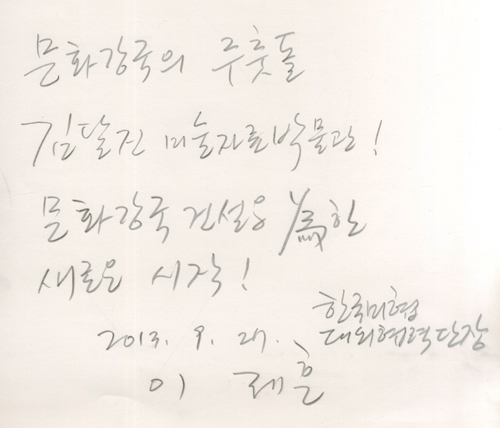 문화강국의 주춧돌
김달진 미술자료박물관!
문화강국 건설을 爲한
새로운 시작!
2013. 9. 27.
한국미협
대외협력단장
이 래훈